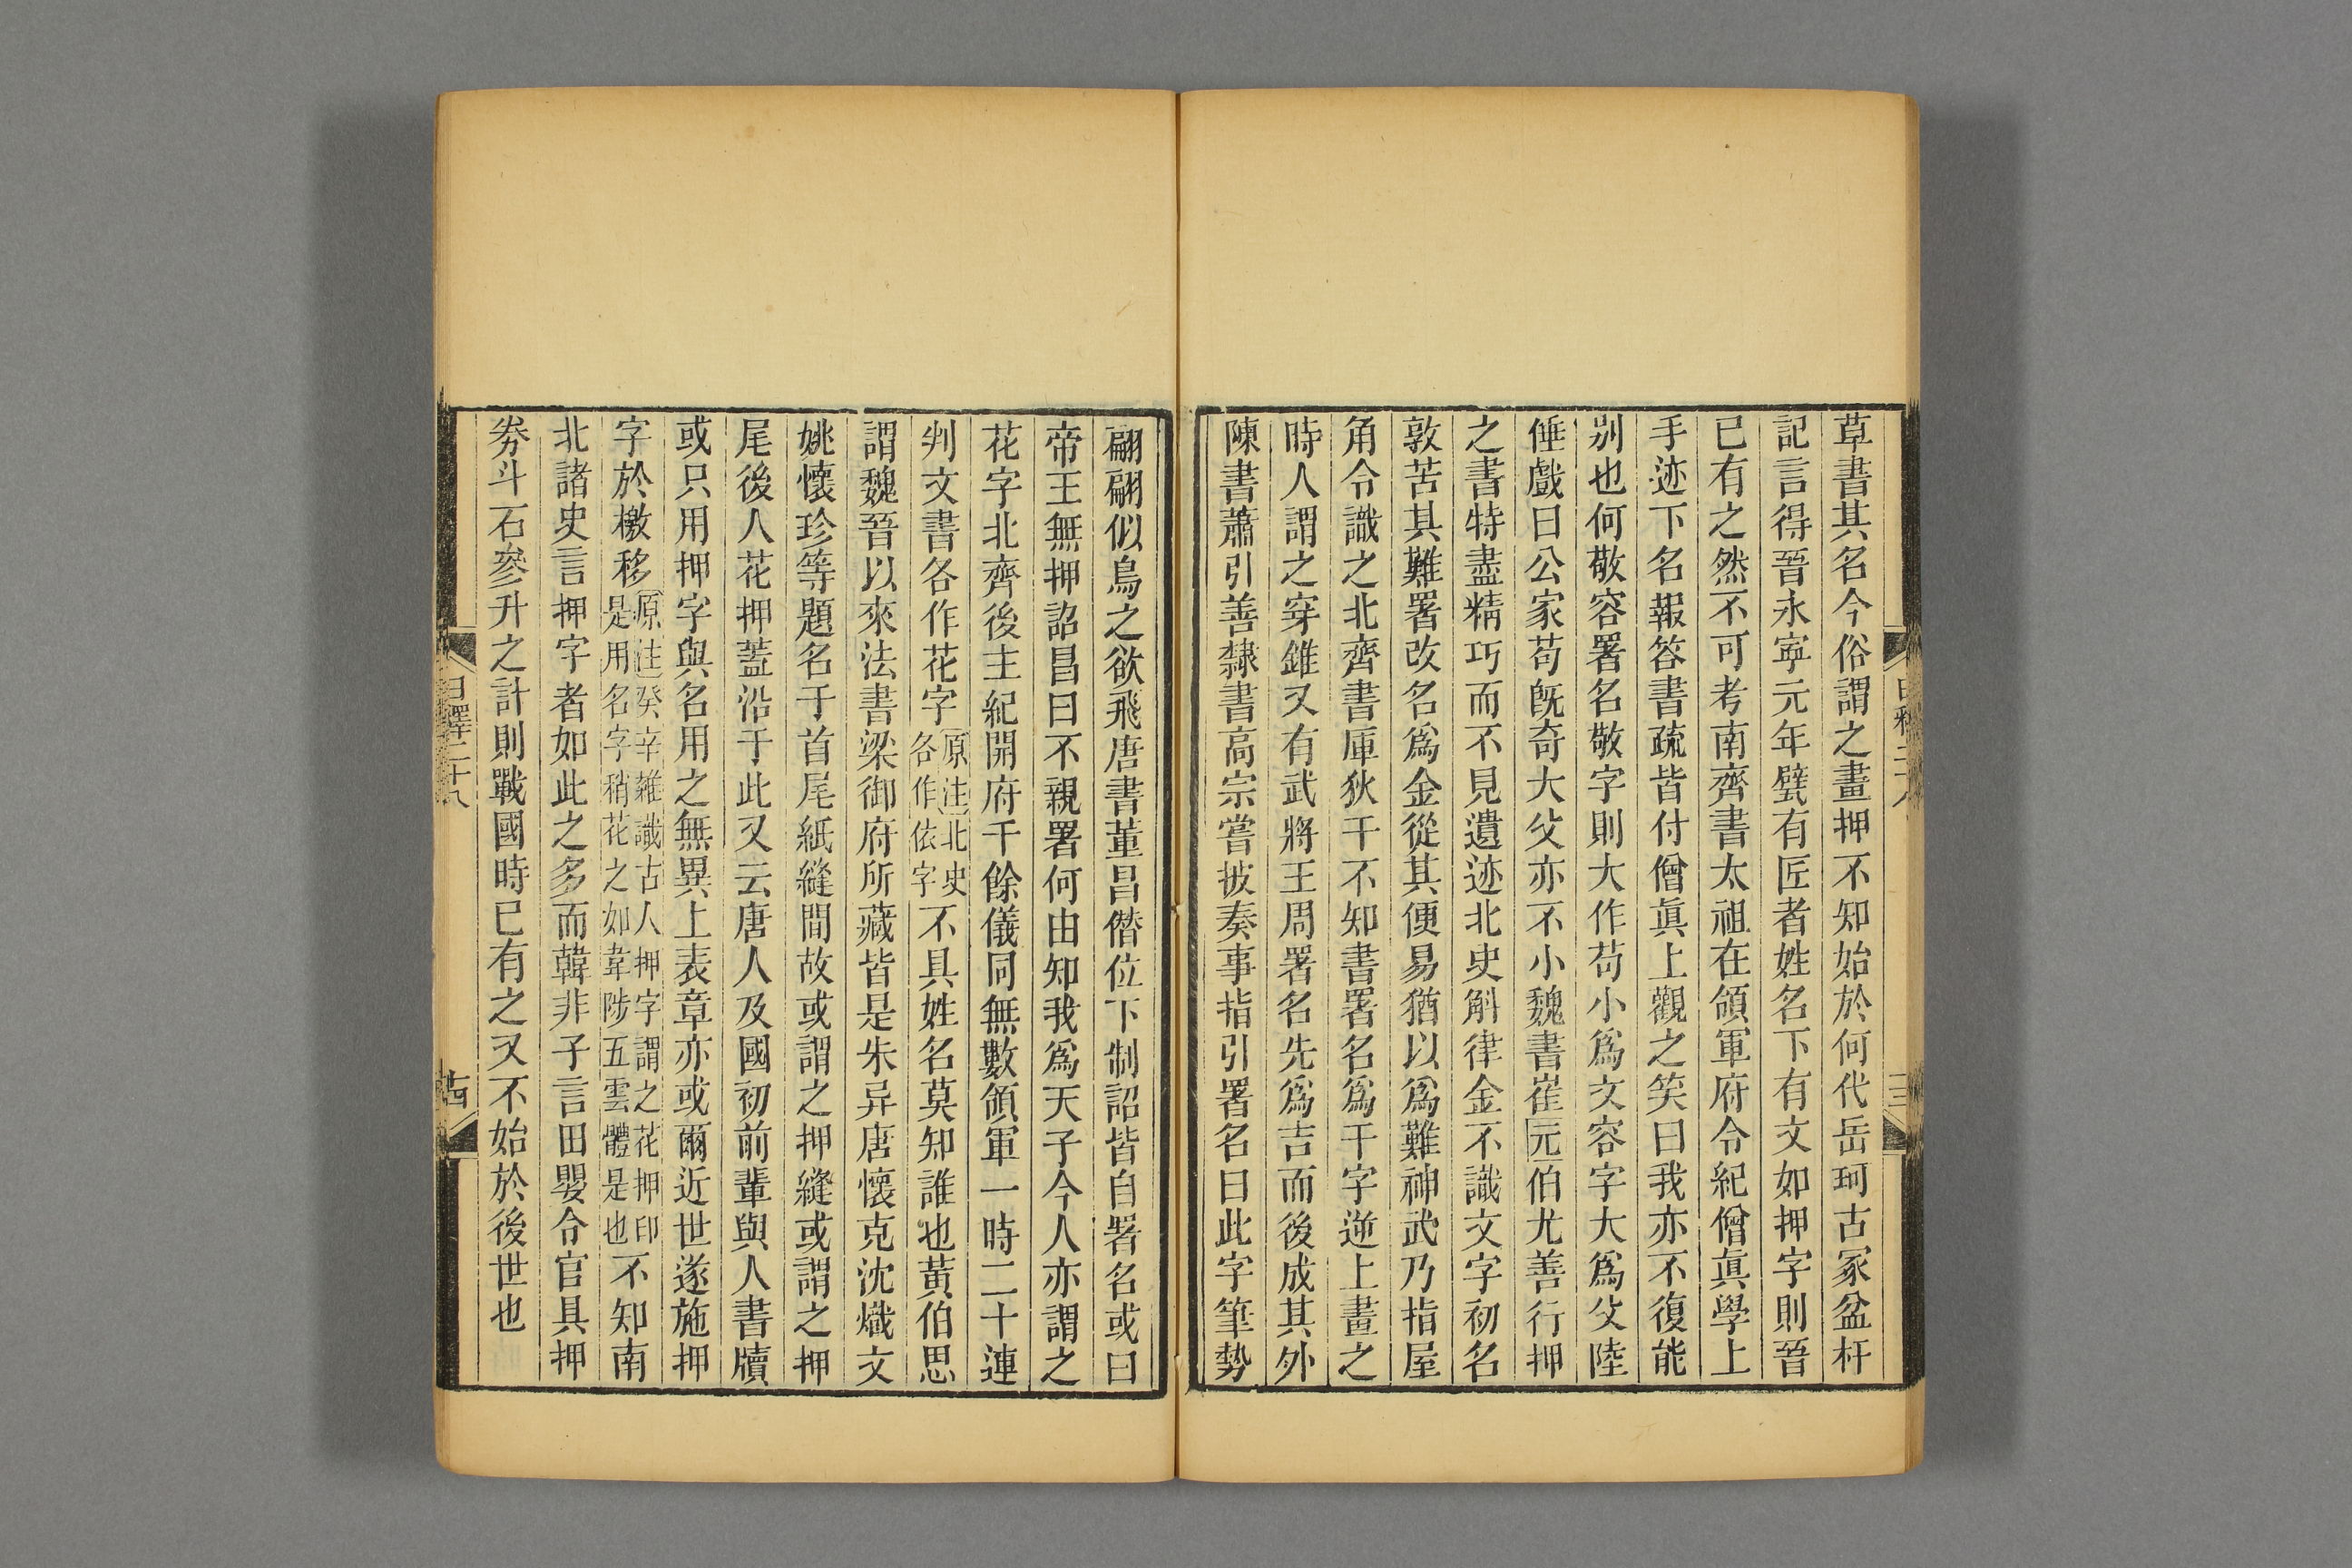 草書其名今俗謂之畫押不知始於何代岳珂古冢盆杅
記言得晉永寧元年甓有匠者姓名下有文如押字則晉
已有之然不可考南齊書太祖在領軍府令紀僧眞學上
手迹下名報答書疏皆付僧眞上觀之笑曰我亦不復能
别也何敬容署名敬字則大作苟小爲文容字大爲父陸
倕戲曰公家苟旣奇大父亦不小魏書崔元伯尤善行押
之書特盡精巧而不見遺迹北史斛律金不識文字初名
敦苦其難署改名爲金從其便易猶以爲難神武乃指屋
角令識之北齊書庫狄干不知書署名爲干字逆上畫之
時人謂之穿錐又有武將王周署名先爲吉而後成其外
陳書蕭引善隸書高宗嘗披奏事指引署名曰此字筆勢
翩翩似鳥之欲飛唐書董昌僭位下制詔皆自署名或曰
帝王無押詔昌曰不親署何由知我爲天子今人亦謂之
花字北齊後主紀開府千餘儀同無數領軍一時二十連
判文書各作花字原注北史各作依字不具姓名莫知誰也黃伯思
謂魏晉以來法書梁御府所藏皆是朱异唐懷克沈熾文
姚懷珍等題名于首尾紙縫間故或謂之押縫或謂之押
尾後人花押蓋沿于此又云唐人及國初前輩與人書牘
或只用押字與名用之無異上表章亦或爾近世遂施押
字於檄移原注癸辛雜識古人押字謂之花押印是用名字稍花之如韋陟五雲體是也不知南
北諸史言押字者如此之多而韓非子言田嬰令官具押
券斗石參升之計則戰國時已有之又不始於後世也
日釋二十八
古